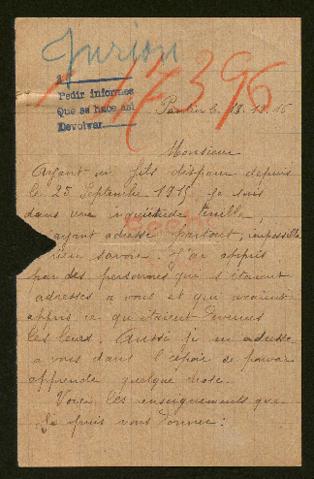 Jurion
117396
2
Pedir informes
Que se hace así
Devolver
Pantin le 18.12.15
Monsieur
Ayant un fils disparu depuis
le 25 Septembre 1915, je suis
dans une inquiétude terrible,
ayant adressé partout, impossible
rien savoir. J'ai appris
par des personnes qui s'étaient
adressés a vous et qui avaient
appris ce qu'étaient devenus
les leurs. Aussi je m'adresse
a vous dans l'espoir de pouvoir
apprendre quelque chose.
Voici les enseignements que
Je puis vous donner: